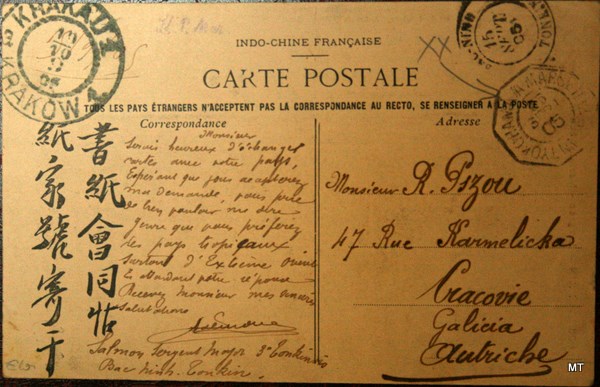 KRAKAU 2
KRAKÓW 2
10
05
INDO-CHINE FRANÇAISE
XX
TONKIN
15
05
CARTE POSTALE
TOUS LES PAYS ÉTRANGERS N'ACCEPTENT PAS LA CORRESPONDANCE AU RECTO, SE RENSEIGNER A LA POSTE
Correspondance
Adresse
Monsieur
Serais heureux d'échanger
cartes avec votre pays,
Espérant que vous accepterez
ma demande, vous prie
de bien vouloir me dire
genre que vous préférez
des pays tropicaux
Surtout d'Extrême Orient
En attendant votre réponse
Recevez Monsieur mes
Salutations
Salmon Sergent Major 3e Tonkinois
Bac Ninh. Tonkin.
Monsieur R. Pszou
47 Rue Karmelicka
Cracovie
Galicia
Autriche
書紙會同帖
紙家號寄于
MT